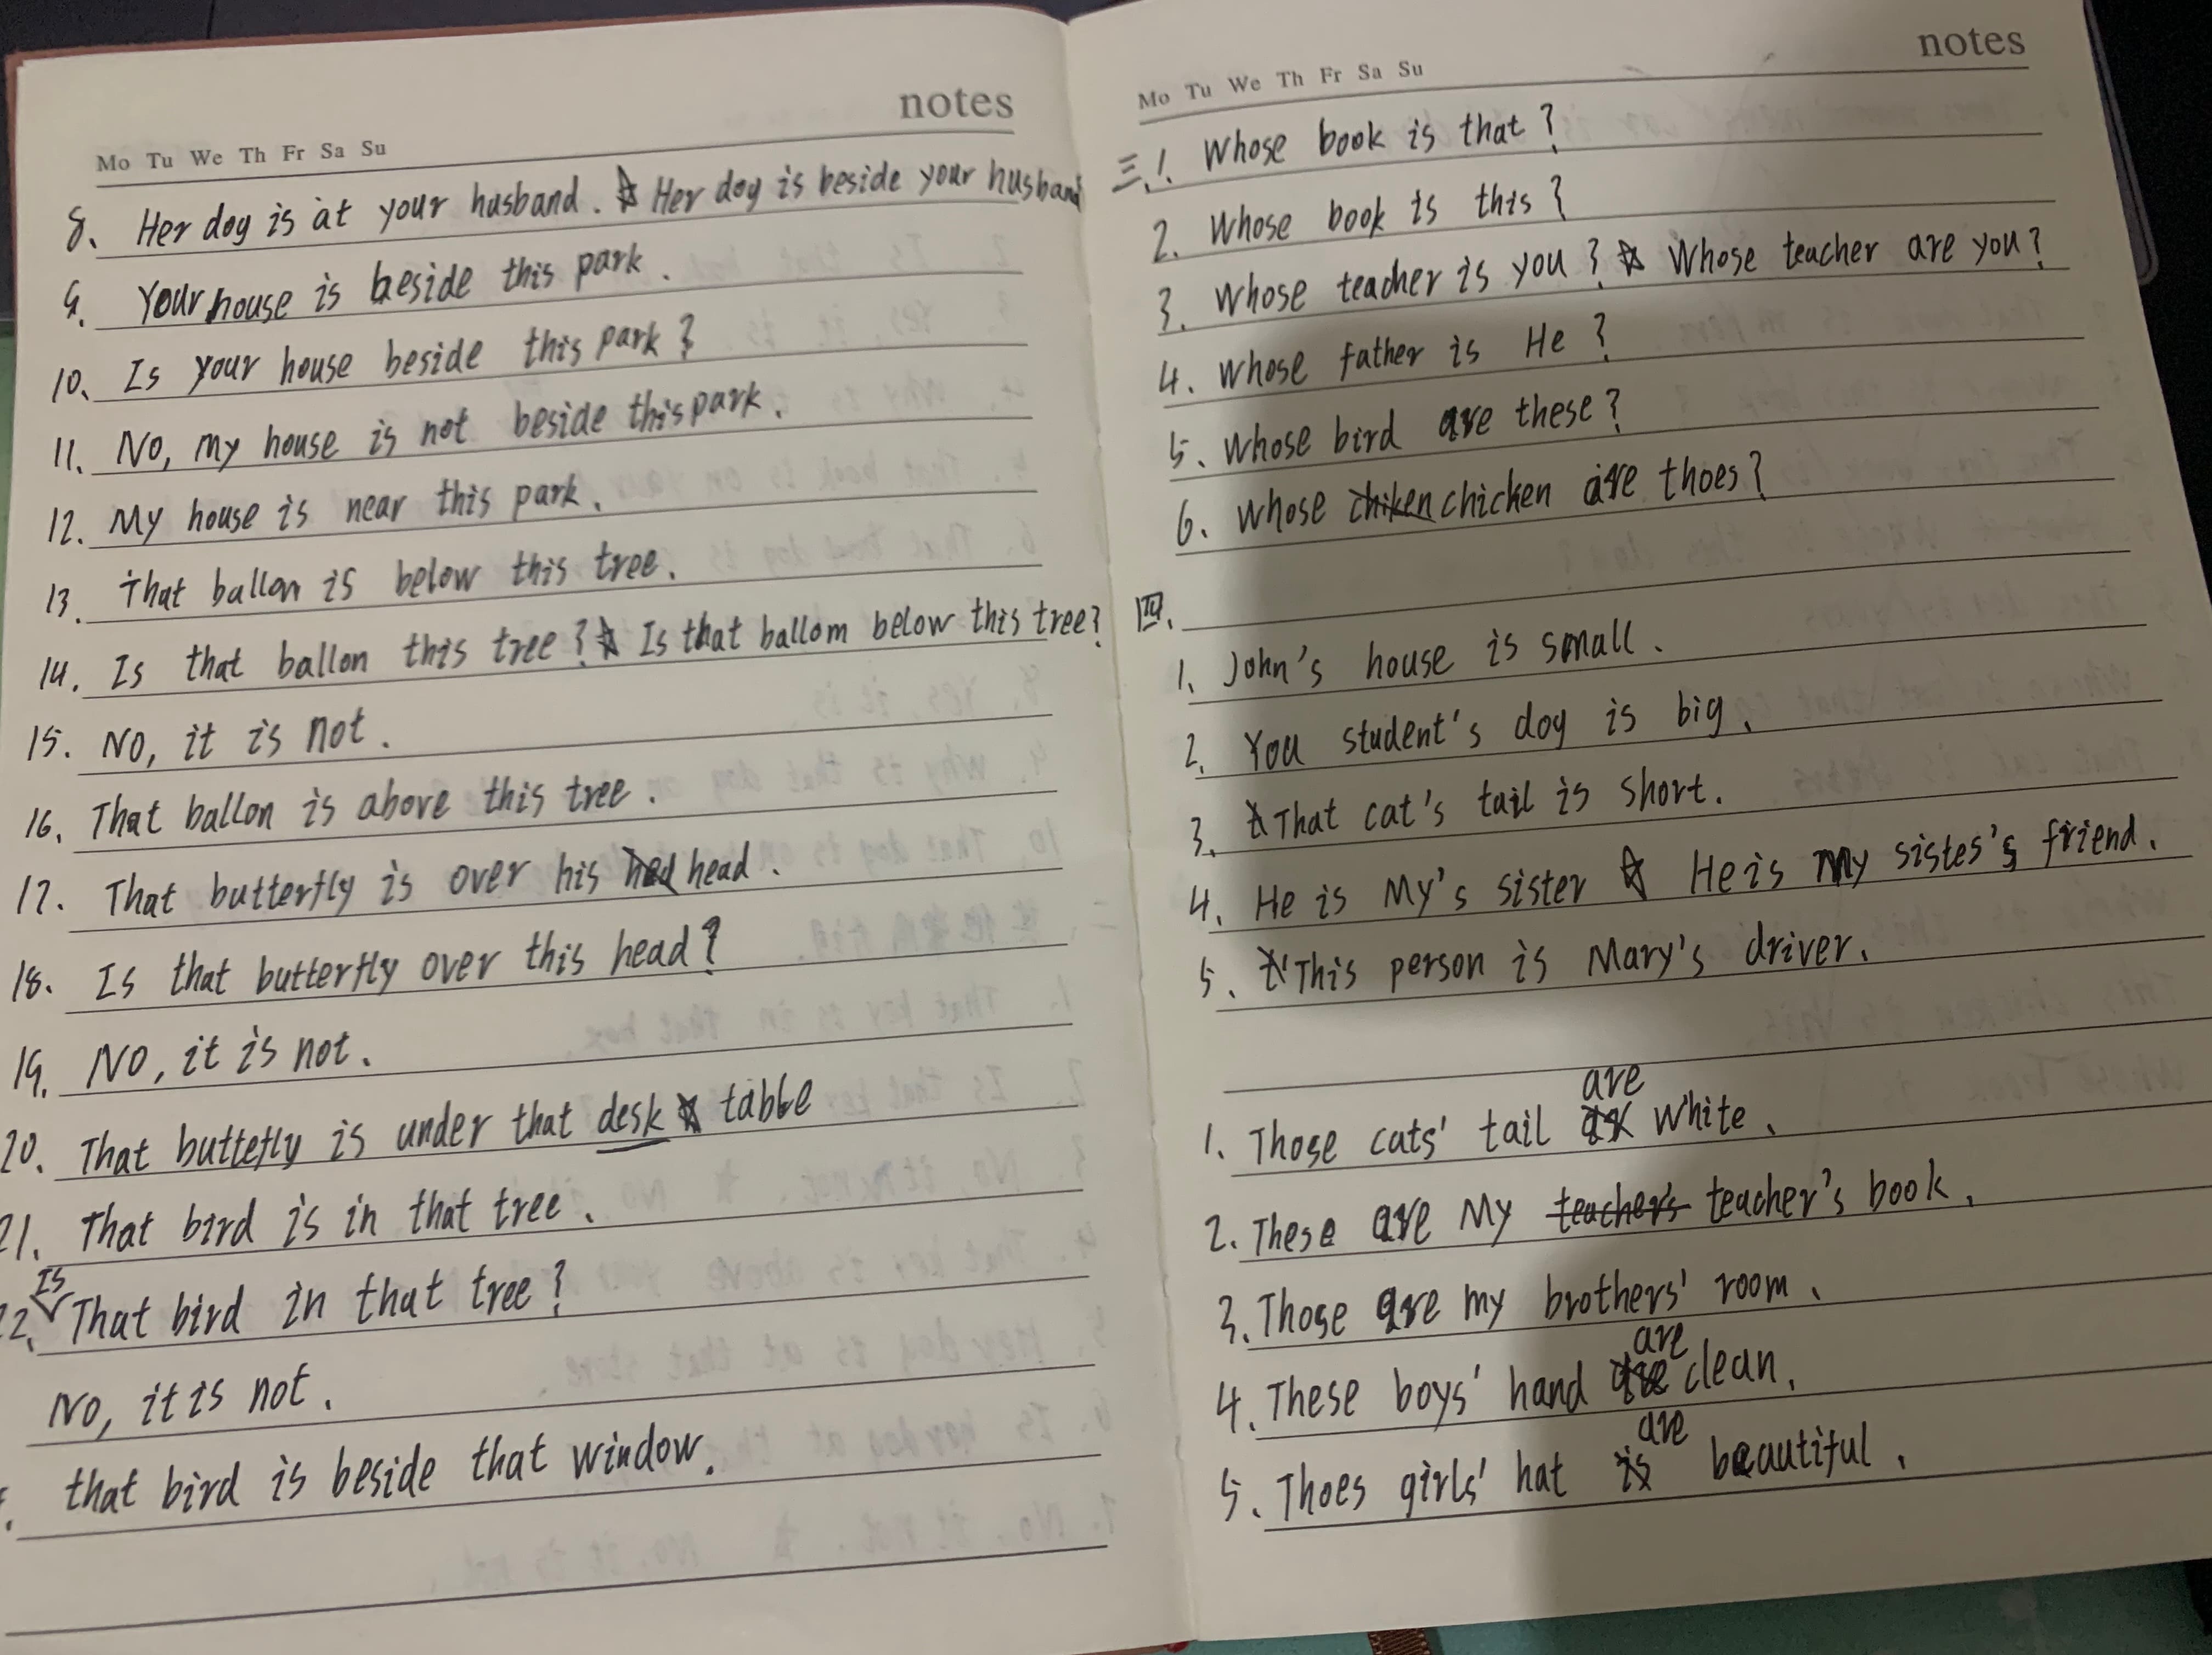 notes
Mo Tu We Th Fr Sa Su
8. Her dog is at your husband. ☆ Her dog is beside your husband
9. Your house is beside this park.
10. Is your house beside this park?
11. No, my house is not beside this park.
12. My house is near this park.
13. That ballon is below this tree.
14. Is that ballon this tree? ☆ Is that ballom below this tree?
15. No, it is not.
16. That ballon is above this tree.
17. That butterfly is over his hed head.
18. Is that butterfly over this head?
19. No, it is not.
20. That buttefly is under that desk ☆ table
21. That bird is in that tree.
Is
22. That bird in that tree?
No, it is not.
that bird is beside that window.
notes
Mo Tu We Th Fr Sa Su
三. 1. Whose book is that?
2. Whose book is this?
3. Whose teacher is you? ☆ Whose teacher are you?
4. Whose father is He?
5. Whose bird are these?
6. Whose chiken chicken are thoes?
四.
1. John's house is small.
2. You student's dog is big.
3. That cat's tail is short.
4. He is My's sister ☆ He is My sistes's friend.
5. This person is Mary's driver.
are
1. Those cats' tail white.
2. These are My teacher's teacher's book.
3. Those are my brothers' room.
are
4. These boys' hand are clean.
are
5. Thoes girls' hat is beautiful.